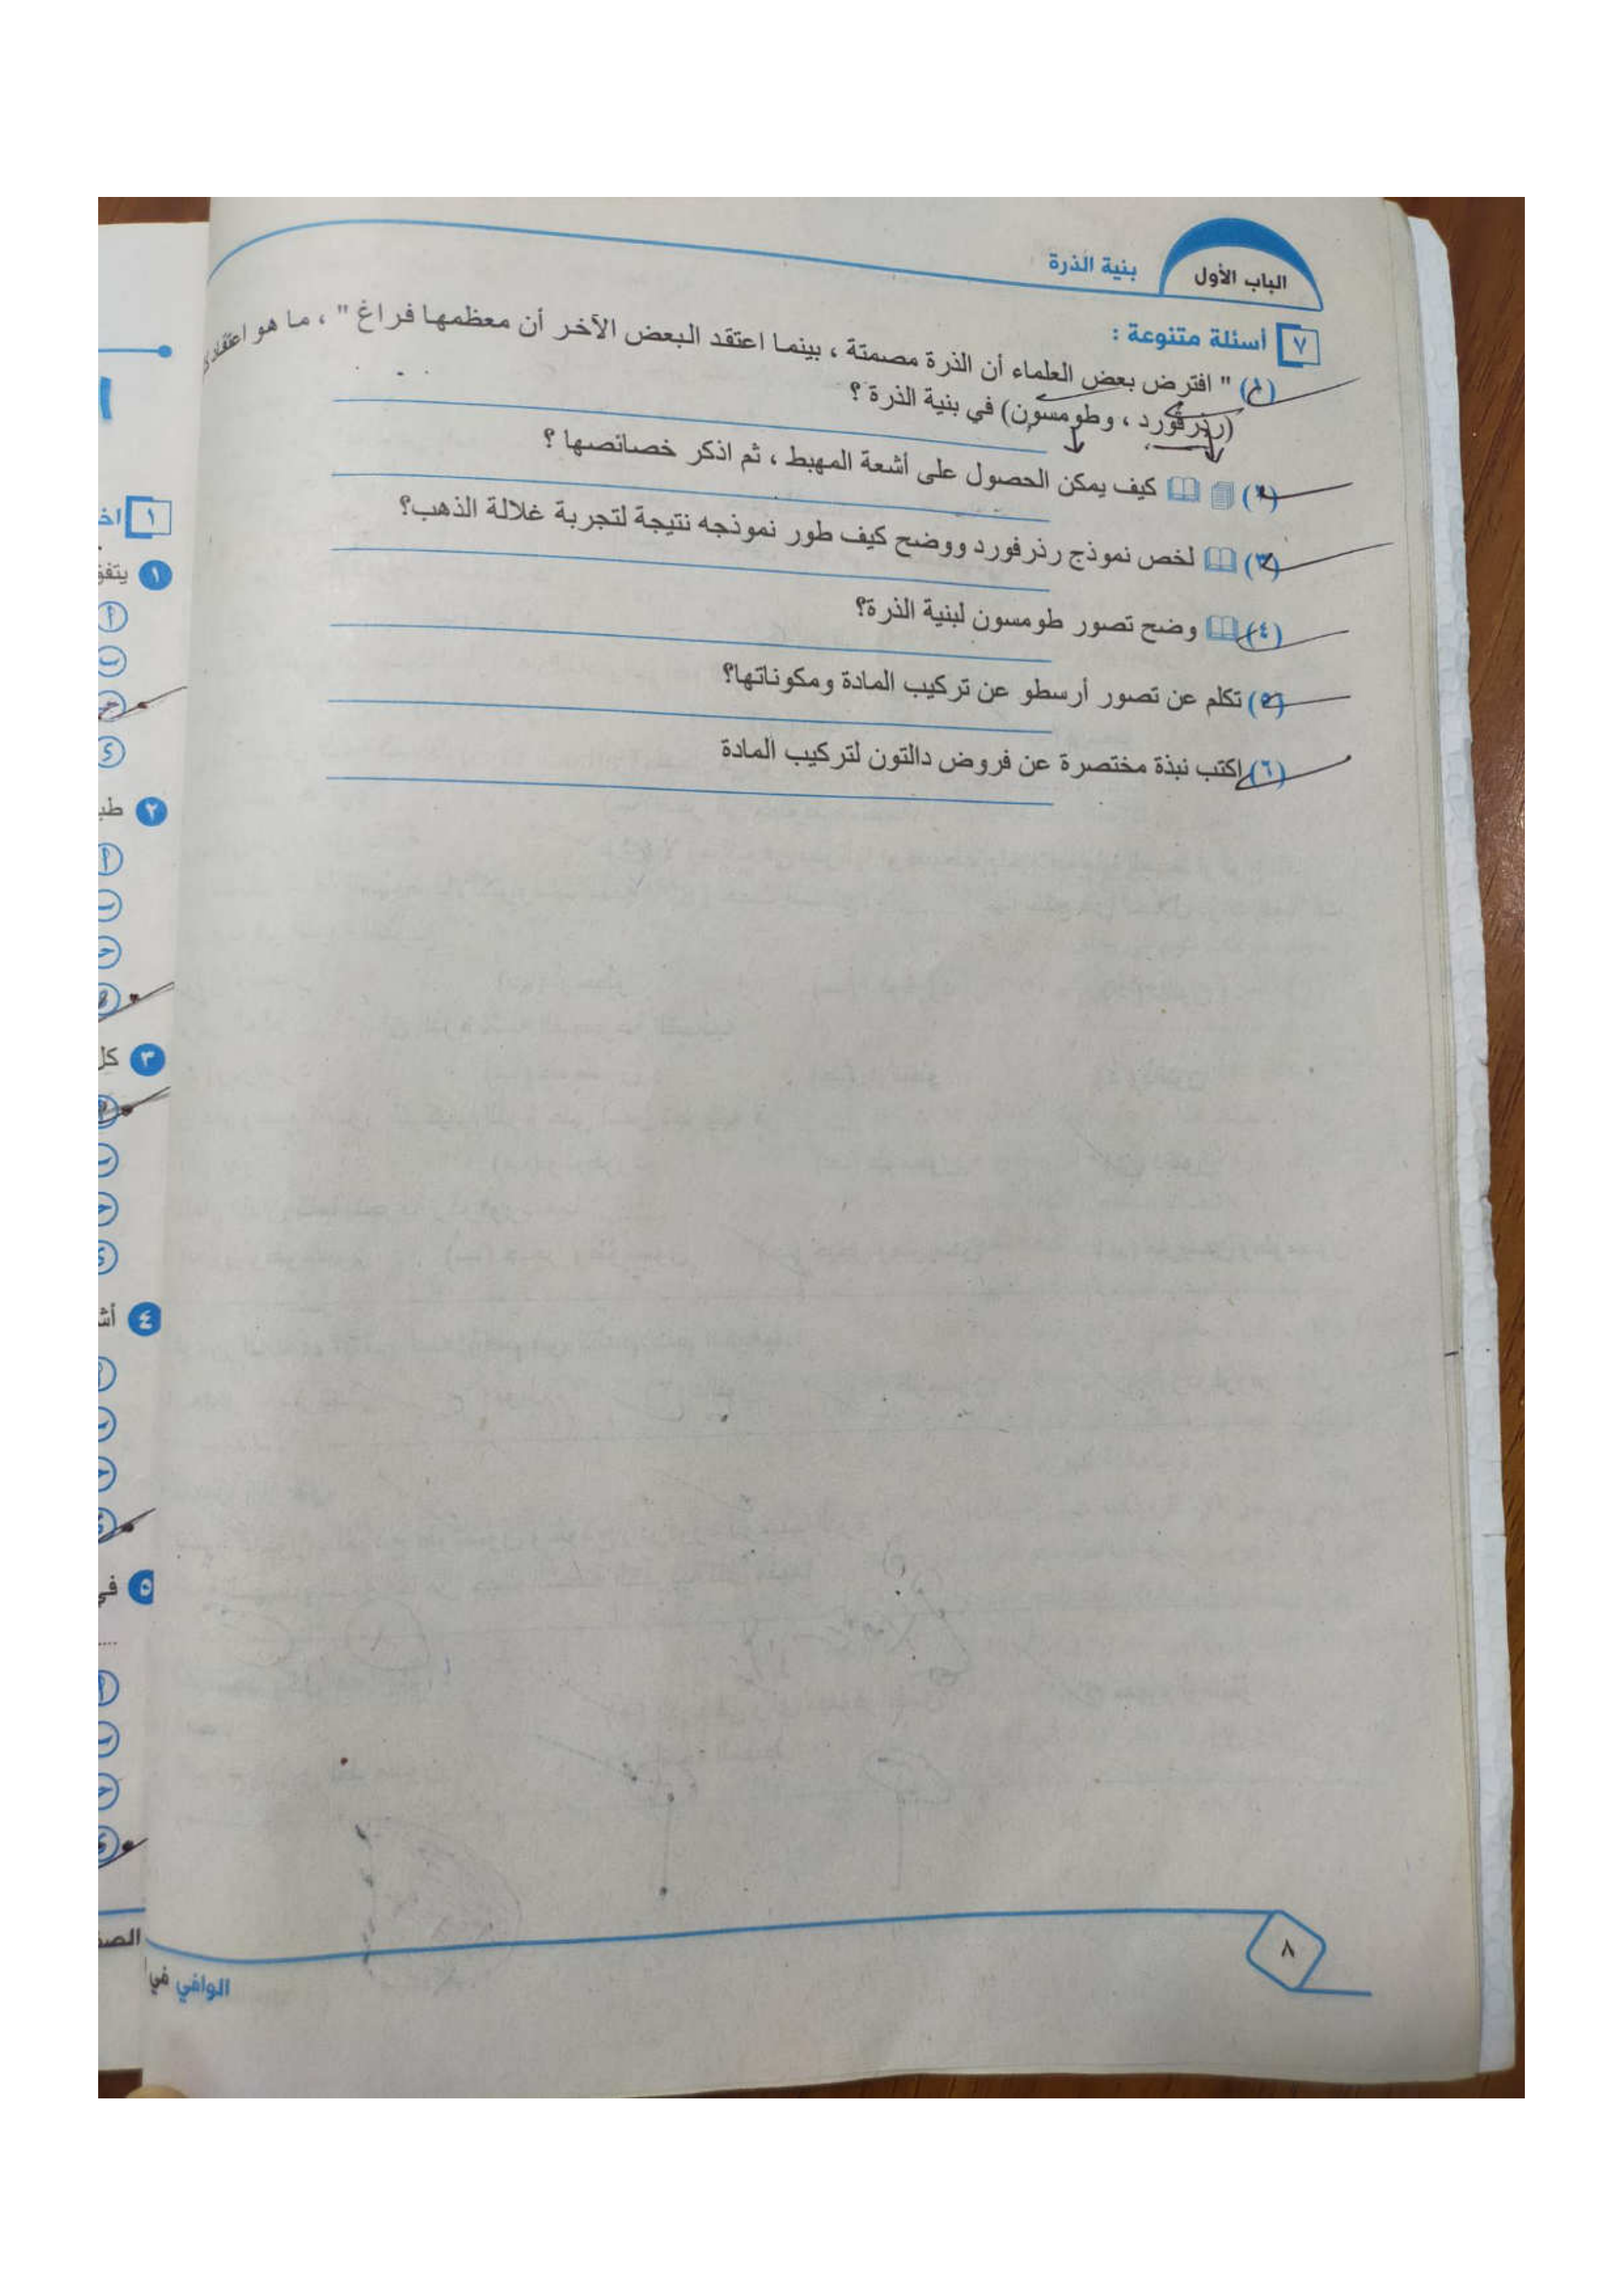 الباب الأول
بنية الذرة
٧ أسئلة متنوعة :
(١) " افترض بعض العلماء أن الذرة مصمتة ، بينما اعتقد البعض الآخر أن معظمها فراغ " ، ما هو اعتقاد
(رذرفورد ، وطومسون) في بنية الذرة ؟
(٢) كيف يمكن الحصول على أشعة المهبط ، ثم اذكر خصائصها ؟
(٣) لخص نموذج رذرفورد ووضح كيف طور نموذجه نتيجة لتجربة غلالة الذهب؟
(٤) وضح تصور طومسون لبنية الذرة؟
(٥) تكلم عن تصور أرسطو عن تركيب المادة ومكوناتها؟
(٦) اكتب نبذة مختصرة عن فروض دالتون لتركيب المادة
٨
١ اخ
١ يتفق
أ
ب
ج
د
٢ طب
أ
ب
ج
د
٣ كل
أ
ب
ج
د
٤ أش
أ
ب
ج
د
٥ في
....
أ
ب
ج
د
الصف
الوافي في